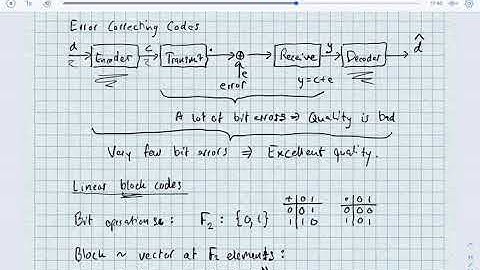 Error Correcting Codes
d Encoder c Transmit Receive y Decoder d̂
e
error y=c+e
A lot of bit errors ⇒ Quality is bad
Very few bit errors ⇒ Excellent quality.
Linear block codes
Bit operations: F₂: {0,1} + 0 1 · 0 1
0 0 1 0 0 0
1 1 0 1 0 1
Block ~ vector of F₂ elements: